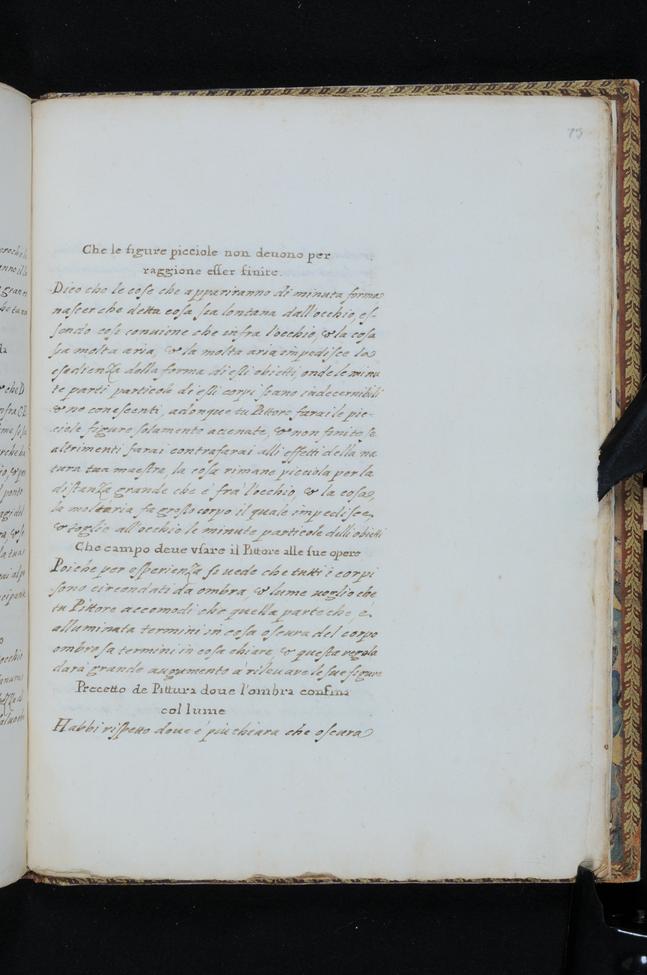 73
Che le figure picciole non deuono per
raggione esser finite.
Dico che le cose che appariranno di minuta forma
nascer che detta cosa sia lontana dall'occhio, es-
sendo cosi conuiene che infra l'occhio, & la cosa
sia molta aria, & la molta aria impedisce la
euidenza della forma di essi obietti, onde le minu
te parti particole di essi corpi siano indecernibili
& no conoscenti, adonque tu Pittore farai le pic-
ciole figure solamente accenate, & non finite, se
altrimenti farai contrafarai alli effetti della na
tura tua maestra, la cosa rimane picciola per la
distanza grande che é frà l'occhio, & la cosa,
la molta aria, fa grosso corpo il quale impedisce
& toglie all'occhio le minute particole dell' obietti
Che campo deue vsare il Pittore alle sue opere
Poiche per esperienza si uede che tutti i corpi
sono circondati da ombra, & lume uoglio che
tu Pittore accomodi che quella parte che, é
alluminata termini in cosa oscura del corpo
ombrosa termini in cosa chiara, & questa regola
dara grande augumento à rileuare le sue figure
Precetto de Pittura doue l'ombra confina
col lume
Habbi rispetto doue é piu chiara che oscura